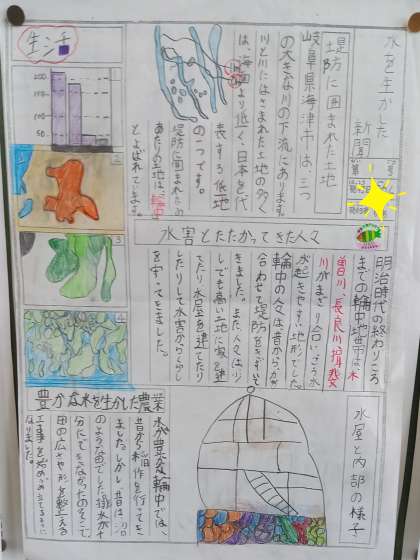 水を生かした
新聞
堤防に囲まれた土地
岐阜県海津市は、三つ
の大きな川の下流にあります。
川と川にはさまれた土地の多く
は、海面より低く、日本を代
表する低地
の一つです。
堤防に囲まれた
あたりの土地は、輪中
とよばれています。
生活
200
150
100
50
2
3
4
水害とたたかってきた人々
明治時代の終わりころ
までの輪中地帯は、木
曽川、長良川、揖斐
川がまざり合い、こう水
が起きやすい地形でした。
輪中の人々は昔から、力を
合わせて堤防をきずいて
きました。また、人々は少
しでも高い地に家を建
てたり、水屋を建てたり
したりして水害からくらし
を守ってきました。
水屋と内部の様子
豊かな水を生かした農業
水が豊かな輪中では、
昔から稲作を行ってき
ました。しかし、昔は、沼
のような田でした。排水が十
分にできなかったのです。そこで、
田の広さや形を整える
工事を始め
なりました。